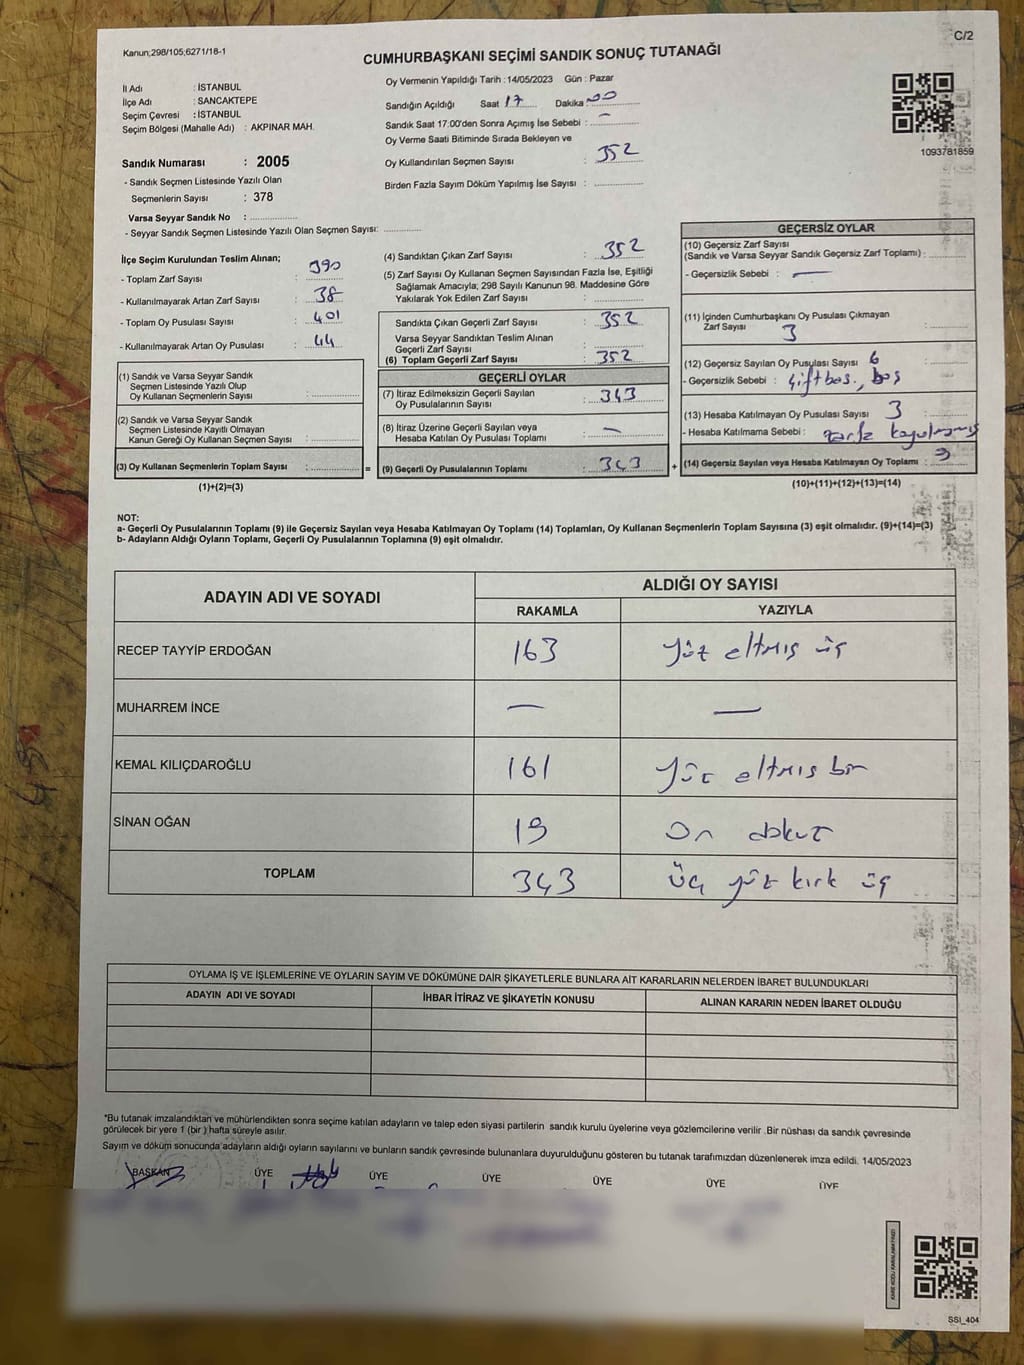 Kanun;298/105;6271/18-1
C/2
CUMHURBAŞKANI SEÇİMİ SANDIK SONUÇ TUTANAĞI
İl Adı : İSTANBUL
İlçe Adı : SANCAKTEPE
Seçim Çevresi : İSTANBUL
Seçim Bölgesi (Mahalle Adı) : AKPINAR MAH.
Sandık Numarası : 2005
- Sandık Seçmen Listesinde Yazılı Olan
Seçmenlerin Sayısı : 378
Varsa Seyyar Sandık No :
- Seyyar Sandık Seçmen Listesinde Yazılı Olan Seçmen Sayısı:
Oy Vermenin Yapıldığı Tarih : 14/05/2023 Gün : Pazar
Sandığın Açıldığı Saat 17 Dakika 00
Sandık Saat 17:00'den Sonra Açımış İse Sebebi : —
Oy Verme Saati Bitiminde Sırada Bekleyen ve
Oy Kullandırılan Seçmen Sayısı : 352
Birden Fazla Sayım Döküm Yapılmış İse Sayısı :
1093781859
İlçe Seçim Kurulundan Teslim Alınan;
- Toplam Zarf Sayısı : 390
- Kullanılmayarak Artan Zarf Sayısı : 38
- Toplam Oy Pusulası Sayısı : 401
- Kullanılmayarak Artan Oy Pusulası : 44
(1) Sandık ve Varsa Seyyar Sandık
Seçmen Listesinde Yazılı Olup
Oy Kullanan Seçmenlerin Sayısı :
(2) Sandık ve Varsa Seyyar Sandık
Seçmen Listesinde Kayıtlı Olmayan
Kanun Gereği Oy Kullanan Seçmen Sayısı :
(3) Oy Kullanan Seçmenlerin Toplam Sayısı : =
(1)+(2)=(3)
(4) Sandıktan Çıkan Zarf Sayısı : 352
(5) Zarf Sayısı Oy Kullanan Seçmen Sayısından Fazla İse, Eşitliği
Sağlamak Amacıyla; 298 Sayılı Kanunun 98. Maddesine Göre
Yakılarak Yok Edilen Zarf Sayısı :
Sandıkta Çıkan Geçerli Zarf Sayısı : 352
Varsa Seyyar Sandıktan Teslim Alınan
Geçerli Zarf Sayısı :
(6) Toplam Geçerli Zarf Sayısı : 352
GEÇERLİ OYLAR
(7) İtiraz Edilmeksizin Geçerli Sayılan
Oy Pusulalarının Sayısı : 343
(8) İtiraz Üzerine Geçerli Sayılan veya
Hesaba Katılan Oy Pusulası Toplamı : —
(9) Geçerli Oy Pusulalarının Toplamı : 343 +
GEÇERSİZ OYLAR
(10) Geçersiz Zarf Sayısı
(Sandık ve Varsa Seyyar Sandık Geçersiz Zarf Toplamı) :
- Geçersizlik Sebebi : —
(11) İçinden Cumhurbaşkanı Oy Pusulası Çıkmayan
Zarf Sayısı 3 :
(12) Geçersiz Sayılan Oy Pusulası Sayısı 6 :
- Geçersizlik Sebebi : boş
(13) Hesaba Katılmayan Oy Pusulası Sayısı 3 :
- Hesaba Katılmama Sebebi : zarfa
(14) Geçersiz Sayılan veya Hesaba Katılmayan Oy Toplamı :
(10)+(11)+(12)+(13)=(14)
NOT:
a- Geçerli Oy Pusulalarının Toplamı (9) ile Geçersiz Sayılan veya Hesaba Katılmayan Oy Toplamı (14) Toplamları, Oy Kullanan Seçmenlerin Toplam Sayısına (3) eşit olmalıdır. (9)+(14)=(3)
b- Adayların Aldığı Oyların Toplamı, Geçerli Oy Pusulalarının Toplamına (9) eşit olmalıdır.
ADAYIN ADI VE SOYADI
ALDIĞI OY SAYISI
RAKAMLA YAZIYLA
RECEP TAYYİP ERDOĞAN 163 yüz altmış üç
MUHARREM İNCE — —
KEMAL KILIÇDAROĞLU 161 yüz altmış bir
SİNAN OĞAN 19 On dokuz
TOPLAM 343 Üç yüz kırk üç
OYLAMA İŞ VE İŞLEMLERİNE VE OYLARIN SAYIM VE DÖKÜMÜNE DAİR ŞİKAYETLERLE BUNLARA AİT KARARLARIN NELERDEN İBARET BULUNDUKLARI
ADAYIN ADI VE SOYADI İHBAR İTİRAZ VE ŞİKAYETİN KONUSU ALINAN KARARIN NEDEN İBARET OLDUĞU
*Bu tutanak imzalandıktan ve mühürlendikten sonra seçime katılan adayların ve talep eden siyasi partilerin sandık kurulu üyelerine veya gözlemcilerine verilir .Bir nüshası da sandık çevresinde
görülecek bir yere 1 (bir ) hafta süreyle asılır.
Sayım ve döküm sonucunda adayların aldığı oyların sayılarını ve bunların sandık çevresinde bulunanlara duyurulduğunu gösteren bu tutanak tarafımızdan düzenlenerek imza edildi. 14/05/2023
BAŞKAN ÜYE ÜYE ÜYE ÜYE ÜYE ÜYE
KARE KODU KARALAMAYINIZ!
SSI_404